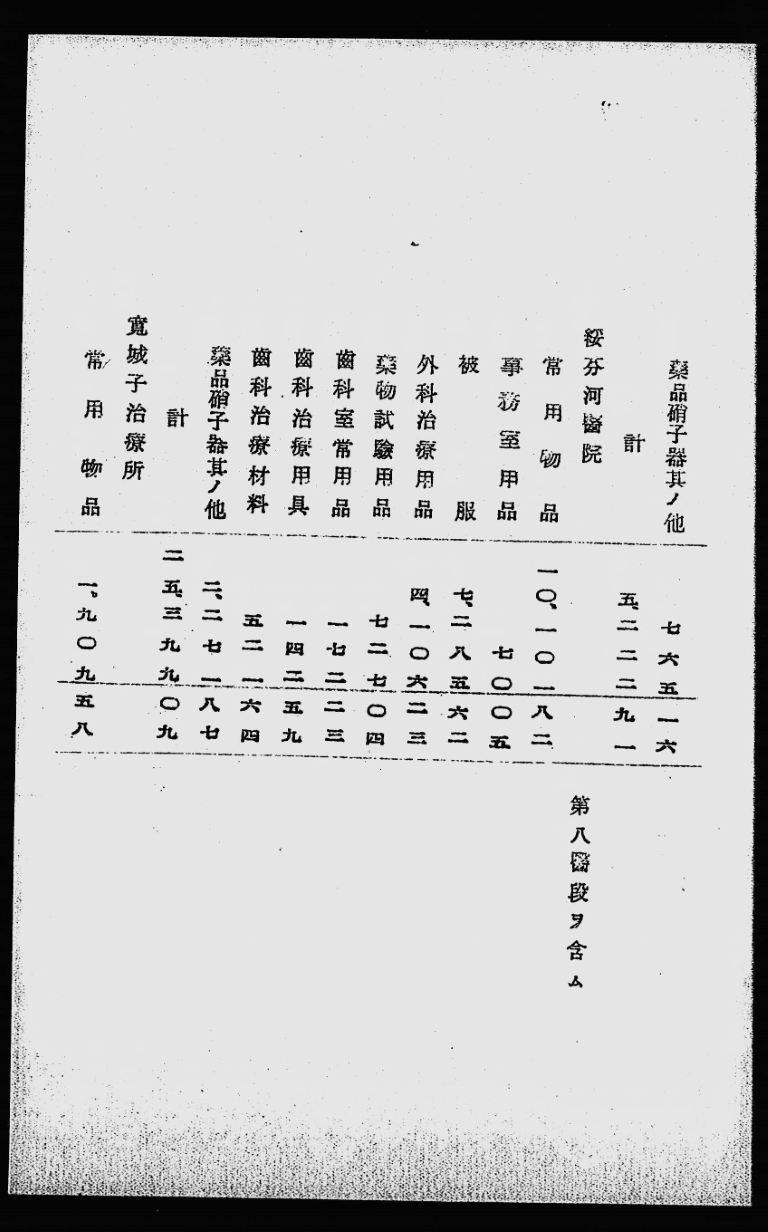 藥品硝子器其ノ他 七六五一六
計 五、二二二九一
綏芬河醫院 第八醫段ヲ含ム
常用物品 一〇、一〇一八二
事務室用品 七〇〇五
被服 七、二八五六二
外科治療用品 四、一〇六二三
藥物試驗用品 七二七〇四
齒科室常用品 一七二二三
齒科治療用具 一四二五九
齒科治療材料 五二一六四
藥品硝子器其ノ他 二、二七一八七
計 二五、三九九〇九
寬城子治療所
常用物品 一、九〇九五八